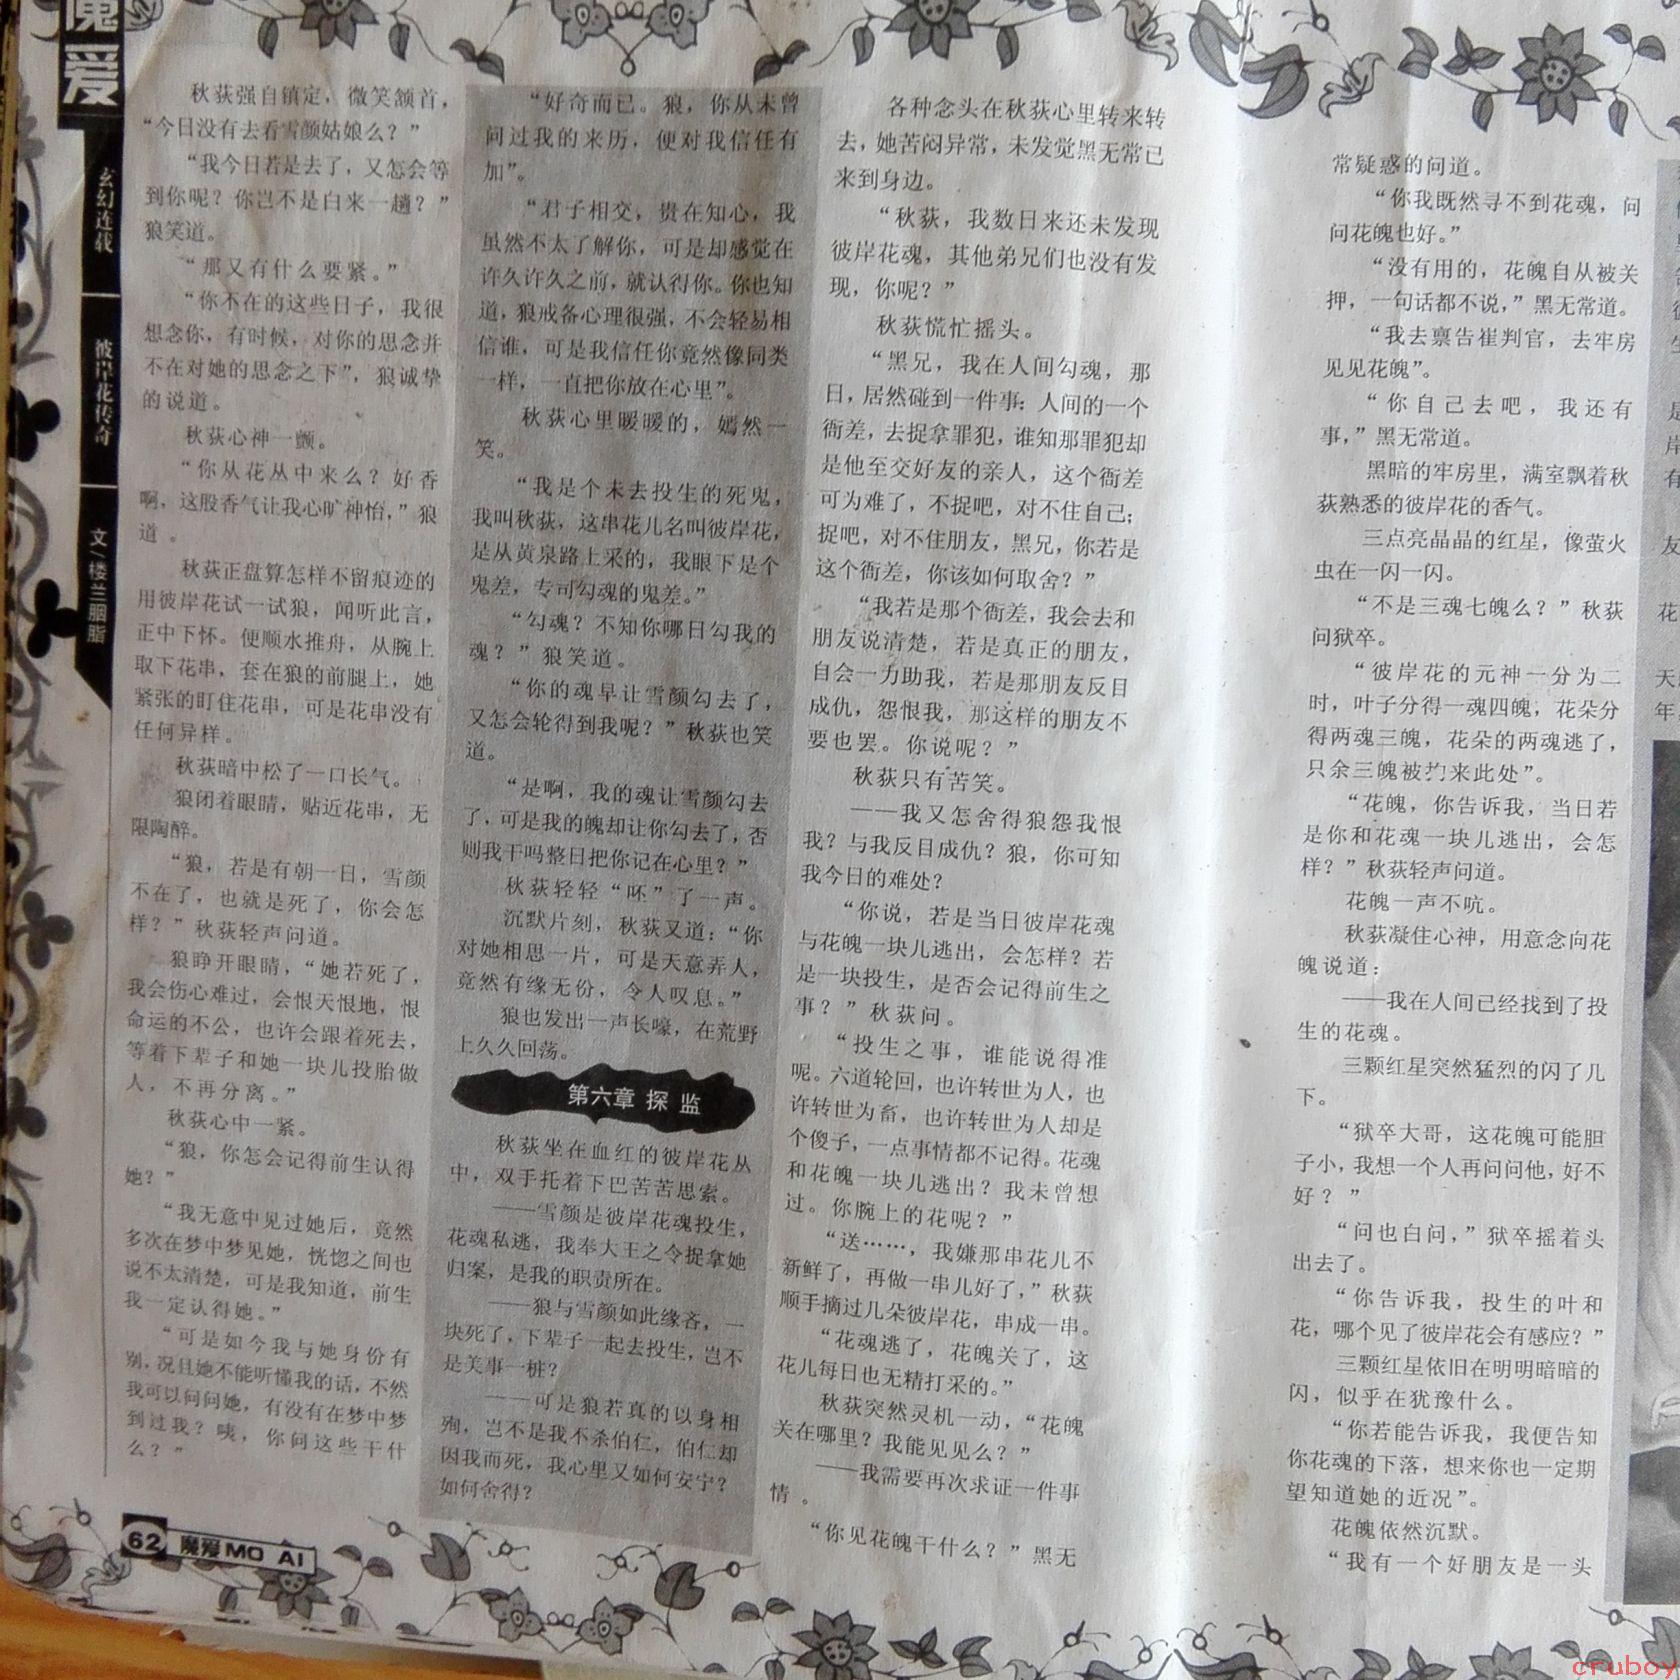 魔爱
玄幻连载
彼岸花传奇
文/楼兰胭脂
秋荻强自镇定，微笑颔首，
“今日没有去看雪颜姑娘么？”
“我今日若是去了，又怎会等
到你呢？你岂不是白来一趟？”
狼笑道。
“那又有什么要紧。”
“你不在的这些日子，我很
想念你，有时候，对你的思念并
不在对她的思念之下”，狼诚挚
的说道。
秋荻心神一颤。
“你从花丛中来么？好香
啊，这股香气让我心旷神怡，”狼
道。
秋荻正盘算怎样不留痕迹的
用彼岸花试一试狼，闻听此言，
正中下怀。便顺水推舟，从腕上
取下花串，套在狼的前腿上，她
紧张的盯住花串，可是花串没有
任何异样。
秋荻暗中松了一口长气。
狼闭着眼睛，贴近花串，无
限陶醉。
“狼，若是有朝一日，雪颜
不在了，也就是死了，你会怎
样？”秋荻轻声问道。
狼睁开眼睛，“她若死了，
我会伤心难过，会恨天恨地，恨
命运的不公，也许会跟着死去，
等着下辈子和她一块儿投胎做
人，不再分离。”
秋荻心中一紧。
“狼，你怎会记得前生认得
她？”
“我无意中见过她后，竟然
多次在梦中梦见她，恍惚之间也
说不太清楚，可是我知道，前生
我一定认得她。”
“可是如今我与她身份有
别，况且她不能听懂我的话，不然
我可以问问她，有没有在梦中梦
到过我？咦，你问这些干什
么？”
“好奇而已。狼，你从未曾
问过我的来历，便对我信任有
加”。
“君子相交，贵在知心，我
虽然不太了解你，可是却感觉在
许久许久之前，就认得你。你也知
道，狼戒备心理很强，不会轻易相
信谁，可是我信任你竟然像同类
一样，一直把你放在心里”。
秋荻心里暖暖的，嫣然一
笑。
“我是个未去投生的死鬼，
我叫秋荻，这串花儿名叫彼岸花，
是从黄泉路上采的，我眼下是个
鬼差，专司勾魂的鬼差。”
“勾魂？不知你哪日勾我的
魂？”狼笑道。
“你的魂早让雪颜勾去了，
又怎会轮得到我呢？”秋荻也笑
道。
“是啊，我的魂让雪颜勾去
了，可是我的魄却让你勾去了，否
则我干吗整日把你记在心里？”
秋荻轻轻“呸”了一声。
沉默片刻，秋荻又道：“你
对她相思一片，可是天意弄人，
竟然有缘无份，令人叹息。”
狼也发出一声长嚎，在荒野
上久久回荡。
第六章 探 监
秋荻坐在血红的彼岸花丛
中，双手托着下巴苦苦思索。
——雪颜是彼岸花魂投生，
花魂私逃，我奉大王之令捉拿她
归案，是我的职责所在。
——狼与雪颜如此缘吝，一
块死了，下辈子一起去投生，岂不
是美事一桩？
——可是狼若真的以身相
殉，岂不是我不杀伯仁，伯仁却
因我而死，我心里又如何安宁？
如何舍得？
各种念头在秋荻心里转来转
去，她苦闷异常，未发觉黑无常已
来到身边。
“秋荻，我数日来还未发现
彼岸花魂，其他弟兄们也没有发
现，你呢？”
秋荻慌忙摇头。
“黑兄，我在人间勾魂，那
日，居然碰到一件事：人间的一个
衙差，去捉拿罪犯，谁知那罪犯却
是他至交好友的亲人，这个衙差
可为难了，不捉吧，对不住自己；
捉吧，对不住朋友，黑兄，你若是
这个衙差，你该如何取舍？”
“我若是那个衙差，我会去和
朋友说清楚，若是真正的朋友，
自会一力助我，若是那朋友反目
成仇，怨恨我，那这样的朋友不
要也罢。你说呢？”
秋荻只有苦笑。
——我又怎舍得狼怨我恨
我？与我反目成仇？狼，你可知
我今日的难处？
“你说，若是当日彼岸花魂
与花魄一块儿逃出，会怎样？若
是一块投生，是否会记得前生之
事？”秋荻问。
“投生之事，谁能说得准
呢。六道轮回，也许转世为人，也
许转世为畜，也许转世为人却是
个傻子，一点事情都不记得。花魂
和花魄一块儿逃出？我未曾想
过。你腕上的花呢？”
“送……，我嫌那串花儿不
新鲜了，再做一串儿好了，”秋荻
顺手摘过几朵彼岸花，串成一串。
“花魂逃了，花魄关了，这
花儿每日也无精打采的。”
秋荻突然灵机一动，“花魄
关在哪里？我能见见么？”
——我需要再次求证一件事
情。
“你见花魄干什么？”黑无
常疑惑的问道。
“你我既然寻不到花魂，问
问花魄也好。”
“没有用的，花魄自从被关
押，一句话都不说，”黑无常道。
“我去禀告崔判官，去牢房
见见花魄”。
“你自己去吧，我还有
事，”黑无常道。
黑暗的牢房里，满室飘着秋
荻熟悉的彼岸花的香气。
三点亮晶晶的红星，像萤火
虫在一闪一闪。
“不是三魂七魄么？”秋荻
问狱卒。
“彼岸花的元神一分为二
时，叶子分得一魂四魄，花朵分
得两魂三魄，花朵的两魂逃了，
只余三魄被拘来此处”。
“花魄，你告诉我，当日若
是你和花魂一块儿逃出，会怎
样？”秋荻轻声问道。
花魄一声不吭。
秋荻凝住心神，用意念向花
魄说道：
——我在人间已经找到了投
生的花魂。
三颗红星突然猛烈的闪了几
下。
“狱卒大哥，这花魄可能胆
子小，我想一个人再问问他，好不
好？”
“问也白问，”狱卒摇着头
出去了。
“你告诉我，投生的叶和
花，哪个见了彼岸花会有感应？”
三颗红星依旧在明明暗暗的
闪，似乎在犹豫什么。
“你若能告诉我，我便告知
你花魂的下落，想来你也一定期
望知道她的近况”。
花魄依然沉默。
“我有一个好朋友是一头
62 魔爱MO AI
crubox